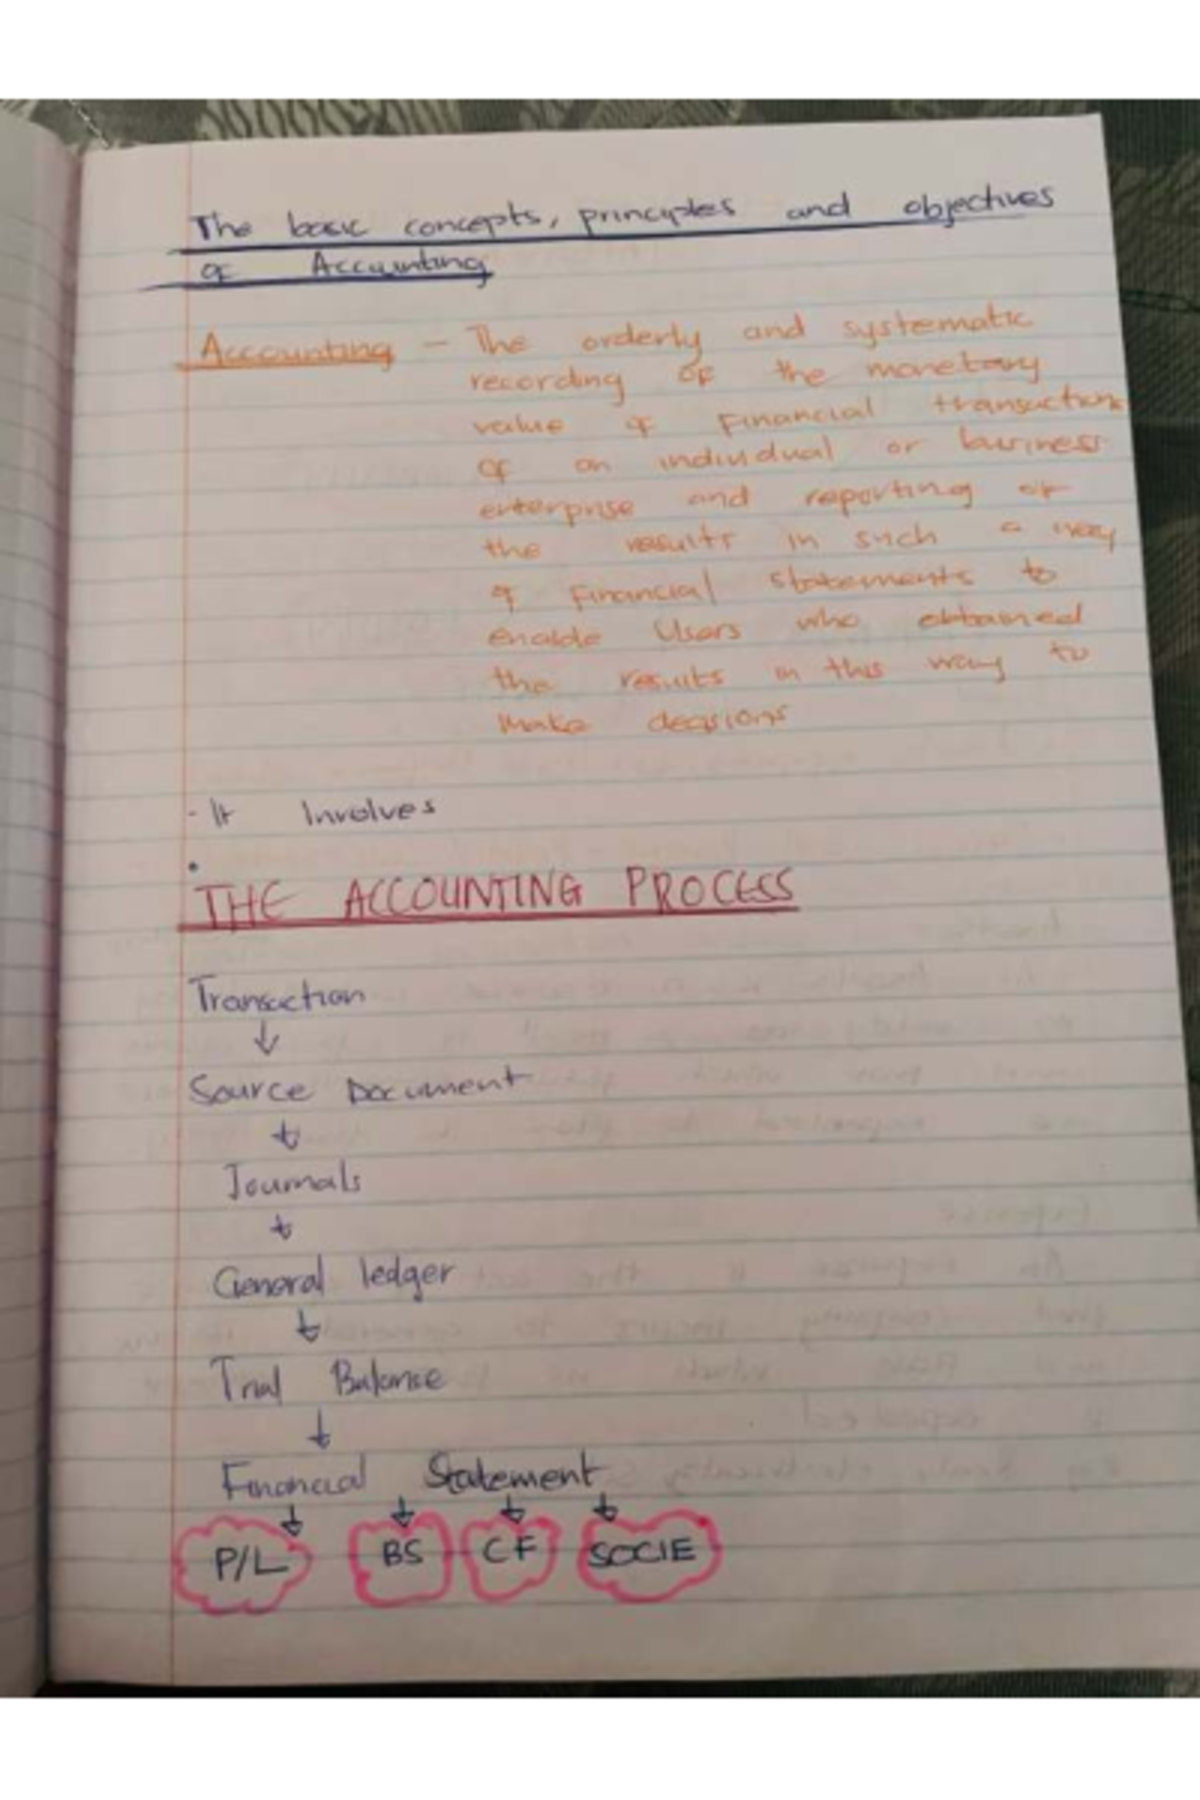 The basic concepts, principles and objectives
of Accounting
Accounting – The orderly and systematic
recording of the monetary
value of Financial transactions
of an individual or business
enterprise and reporting of
the results in such a way
of Financial statements to
enable Users who obtained
the results in this way to
Make decisions
- It Involves
•
THE ACCOUNTING PROCESS
Transaction
↓
Source Document
↓
Journals
↓
General ledger
↓
Trial Balance
↓
Financial Statement
↓ ↓ ↓ ↓
P/L BS CF SOCIE